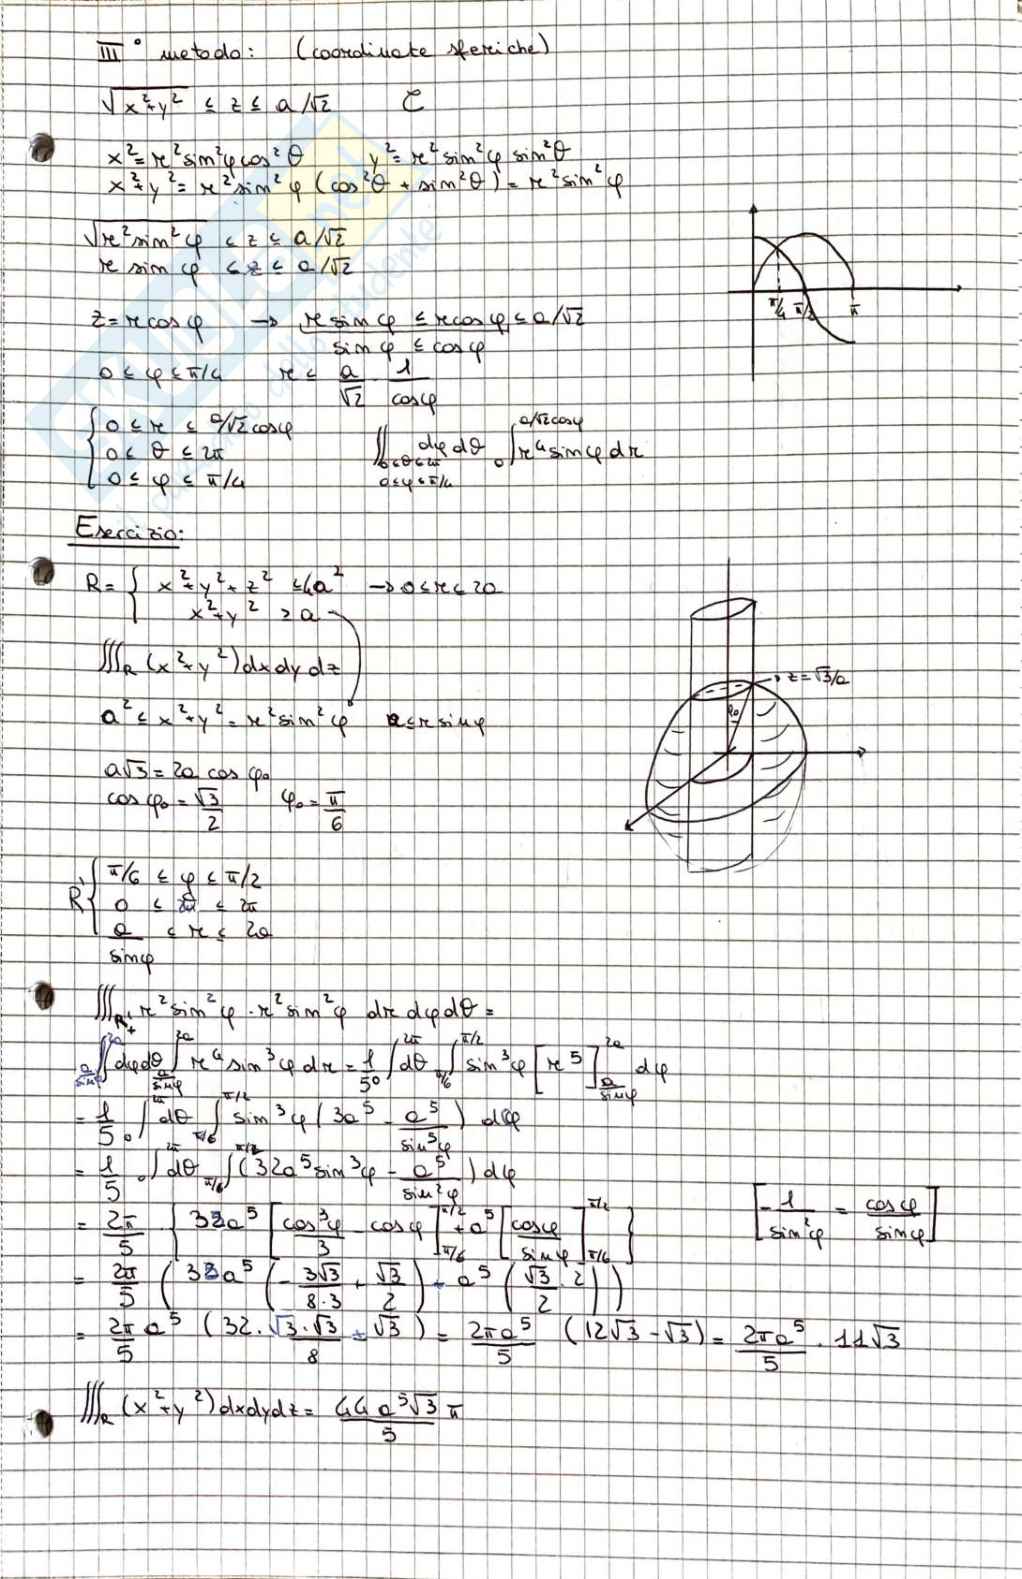 III° metodo: (coordinate sferiche)
√x²+y² ≤ z ≤ a/√2 τ
x²= r² sin²φ cos²θ y²= r² sin²φ sin²θ
x²+y²= r² sin²φ (cos²θ + sin²θ) = r² sin²φ
√r² sin²φ ≤ z ≤ a/√2
r sin φ ≤ z ≤ a/√2
π/4 π/2 π
z = r cos φ → r sin φ ≤ r cos φ ≤ a/√2
sin φ ≤ cos φ
0 ≤ φ ≤ π/4 r ≤ a/√2 1/cos φ
{ 0 ≤ r ≤ a/√2 cos φ
0 ≤ θ ≤ 2π
0 ≤ φ ≤ π/4
∬ 0≤θ≤2π 0≤φ≤π/4 dφ dθ ∫₀^(a/√2 cos φ) r⁴ sin φ dr
Esercizio:
R = { x²+y²+z² ≤ 4a² → 0 ≤ r ≤ 2a
x²+y² ≥ a
∭R (x²+y²) dx dy dz
z = √3/a
φ₀
a² ≤ x²+y² = r² sin²φ a ≤ r sin φ
a√3 = 2a cos φ₀
cos φ₀ = √3/2 φ₀ = π/6
R' { π/6 ≤ φ ≤ π/2
0 ≤ ≤ 2π
a/sin φ ≤ r ≤ 2a
∭R'+ r² sin²φ · r² sin²φ dr dφ dθ =
∬ dφ dθ ∫_(a/sin φ)^(2a) r⁴ sin³φ dr = 1/5 ∫₀^(2π) dθ ∫_(π/6)^(π/2) sin³φ [r⁵]_(a/sin φ)^(2a) dφ
= 1/5 ∫₀^(2π) dθ ∫_(π/6)^(π/2) sin³φ (3a⁵ - a⁵/sin⁵φ) dφ
= 1/5 ∫₀^(2π) dθ ∫_(π/6)^(π/2) (32a⁵ sin³φ - a⁵/sin²φ) dφ
= 2π/5 { 32a⁵ [cos³φ/3 - cos φ]_(π/6)^(π/2) + a⁵ [cos φ/sin φ]_(π/6)^(π/2) }
[ - 1/sin²φ = cos φ/sin φ ]
= 2π/5 ( 32a⁵ ( - 3√3/8·3 + √3/2 ) - a⁵ ( √3/2 · 2 ) )
= 2π/5 a⁵ ( 32 · √3·√3/8 - √3 ) = 2πa⁵/5 (12√3 - √3) = 2πa⁵/5 · 11√3
∭R (x²+y²) dx dy dz = 44 a⁵√3/5 π